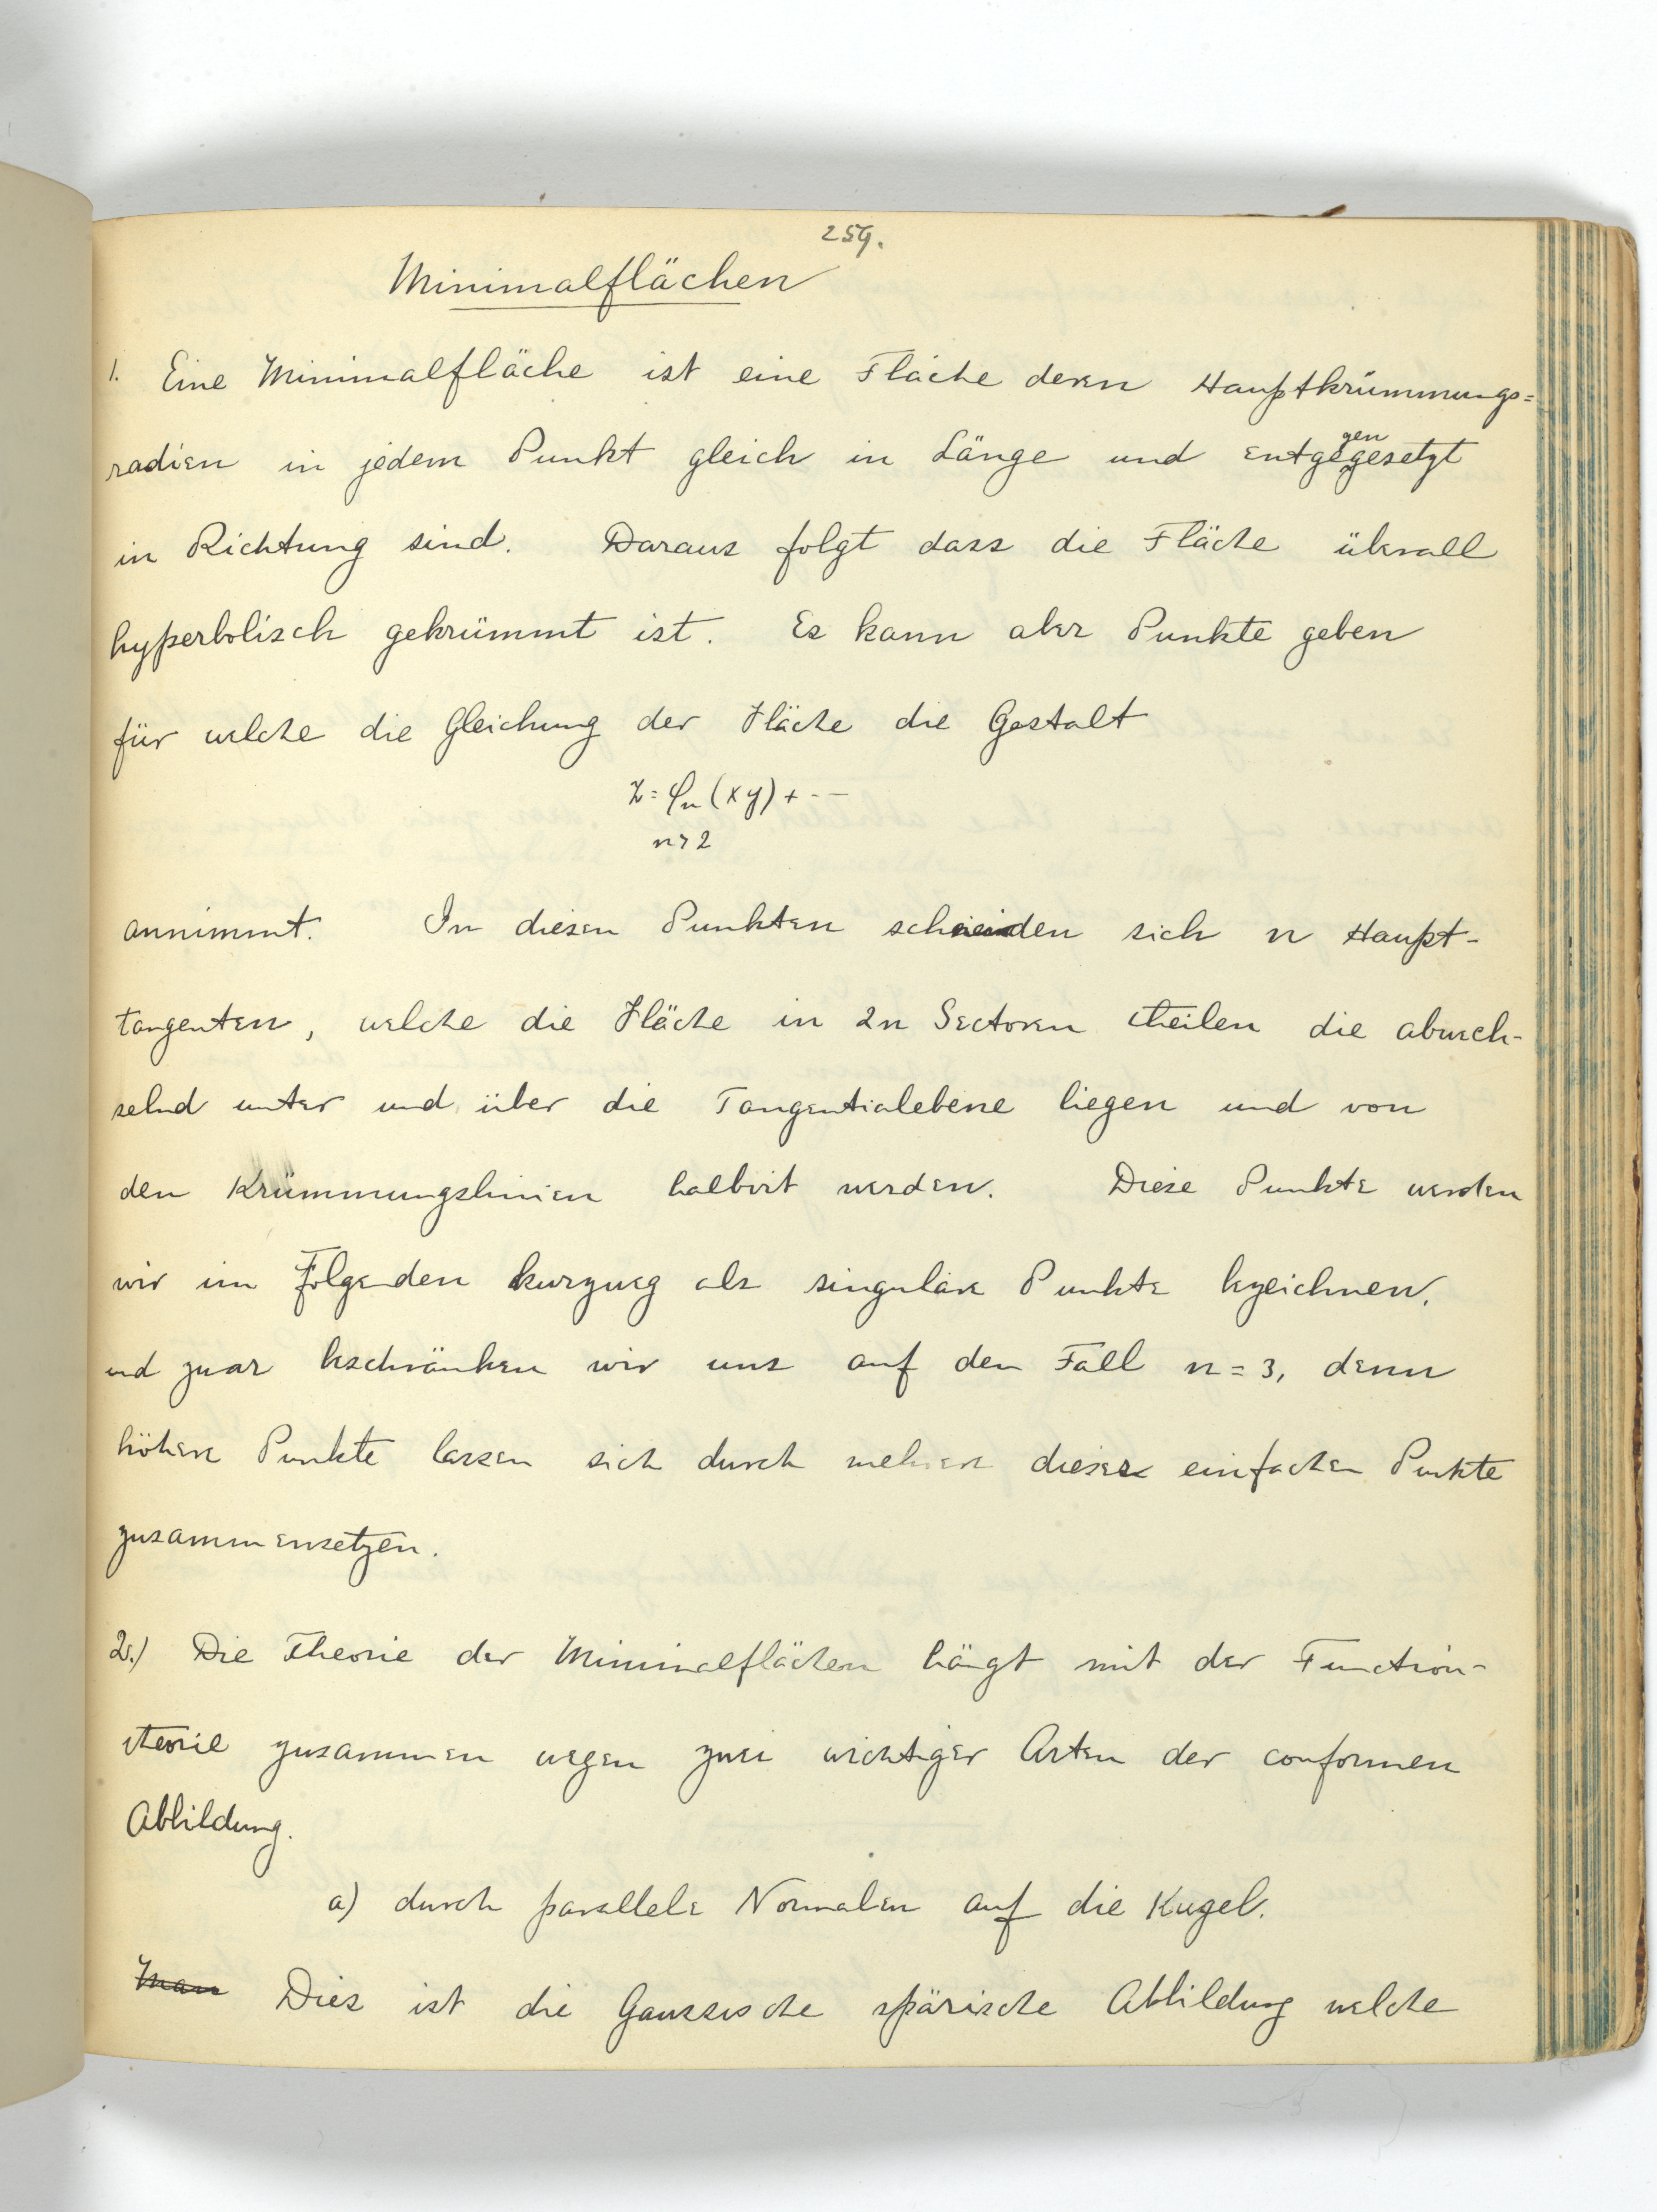 259.
Minimalflächen
1. Eine Minimalfläche ist eine Fläche deren Hauptkrümmungs=
radien in jedem Punkt gleich in Länge und entgegengesetzt
in Richtung sind. Daraus folgt dass die Fläche überall
hyperbolisch gekrümmt ist. Es kann aber Punkte geben
für welche die Gleichung der Fläche die Gestalt
z = φₙ(xy) + ---
n > 2
annimmt. In diesen Punkten schneiden sich n Haupt-
tangenten, welche die Fläche in 2n Sectoren theilen die abwech-
selnd unter und über die Tangentialebene liegen und von
den Krümmungslinien halbirt werden. Diese Punkte werden
wir im Folgenden kurzweg als singuläre Punkte bezeichnen,
und zwar beschränken wir uns auf den Fall n = 3, denn
höhere Punkte lassen sich durch mehrere dieser einfachen Punkte
zusammensetzen.
2.) Die Theorie der Minimalflächen hängt mit der Function-
theorie zusammen wegen zwei wichtiger Arten der conformen
Abbildung.
a) durch parallele Normalen auf die Kugel.
Man Dies ist die Gaussische spärische Abbildung welche